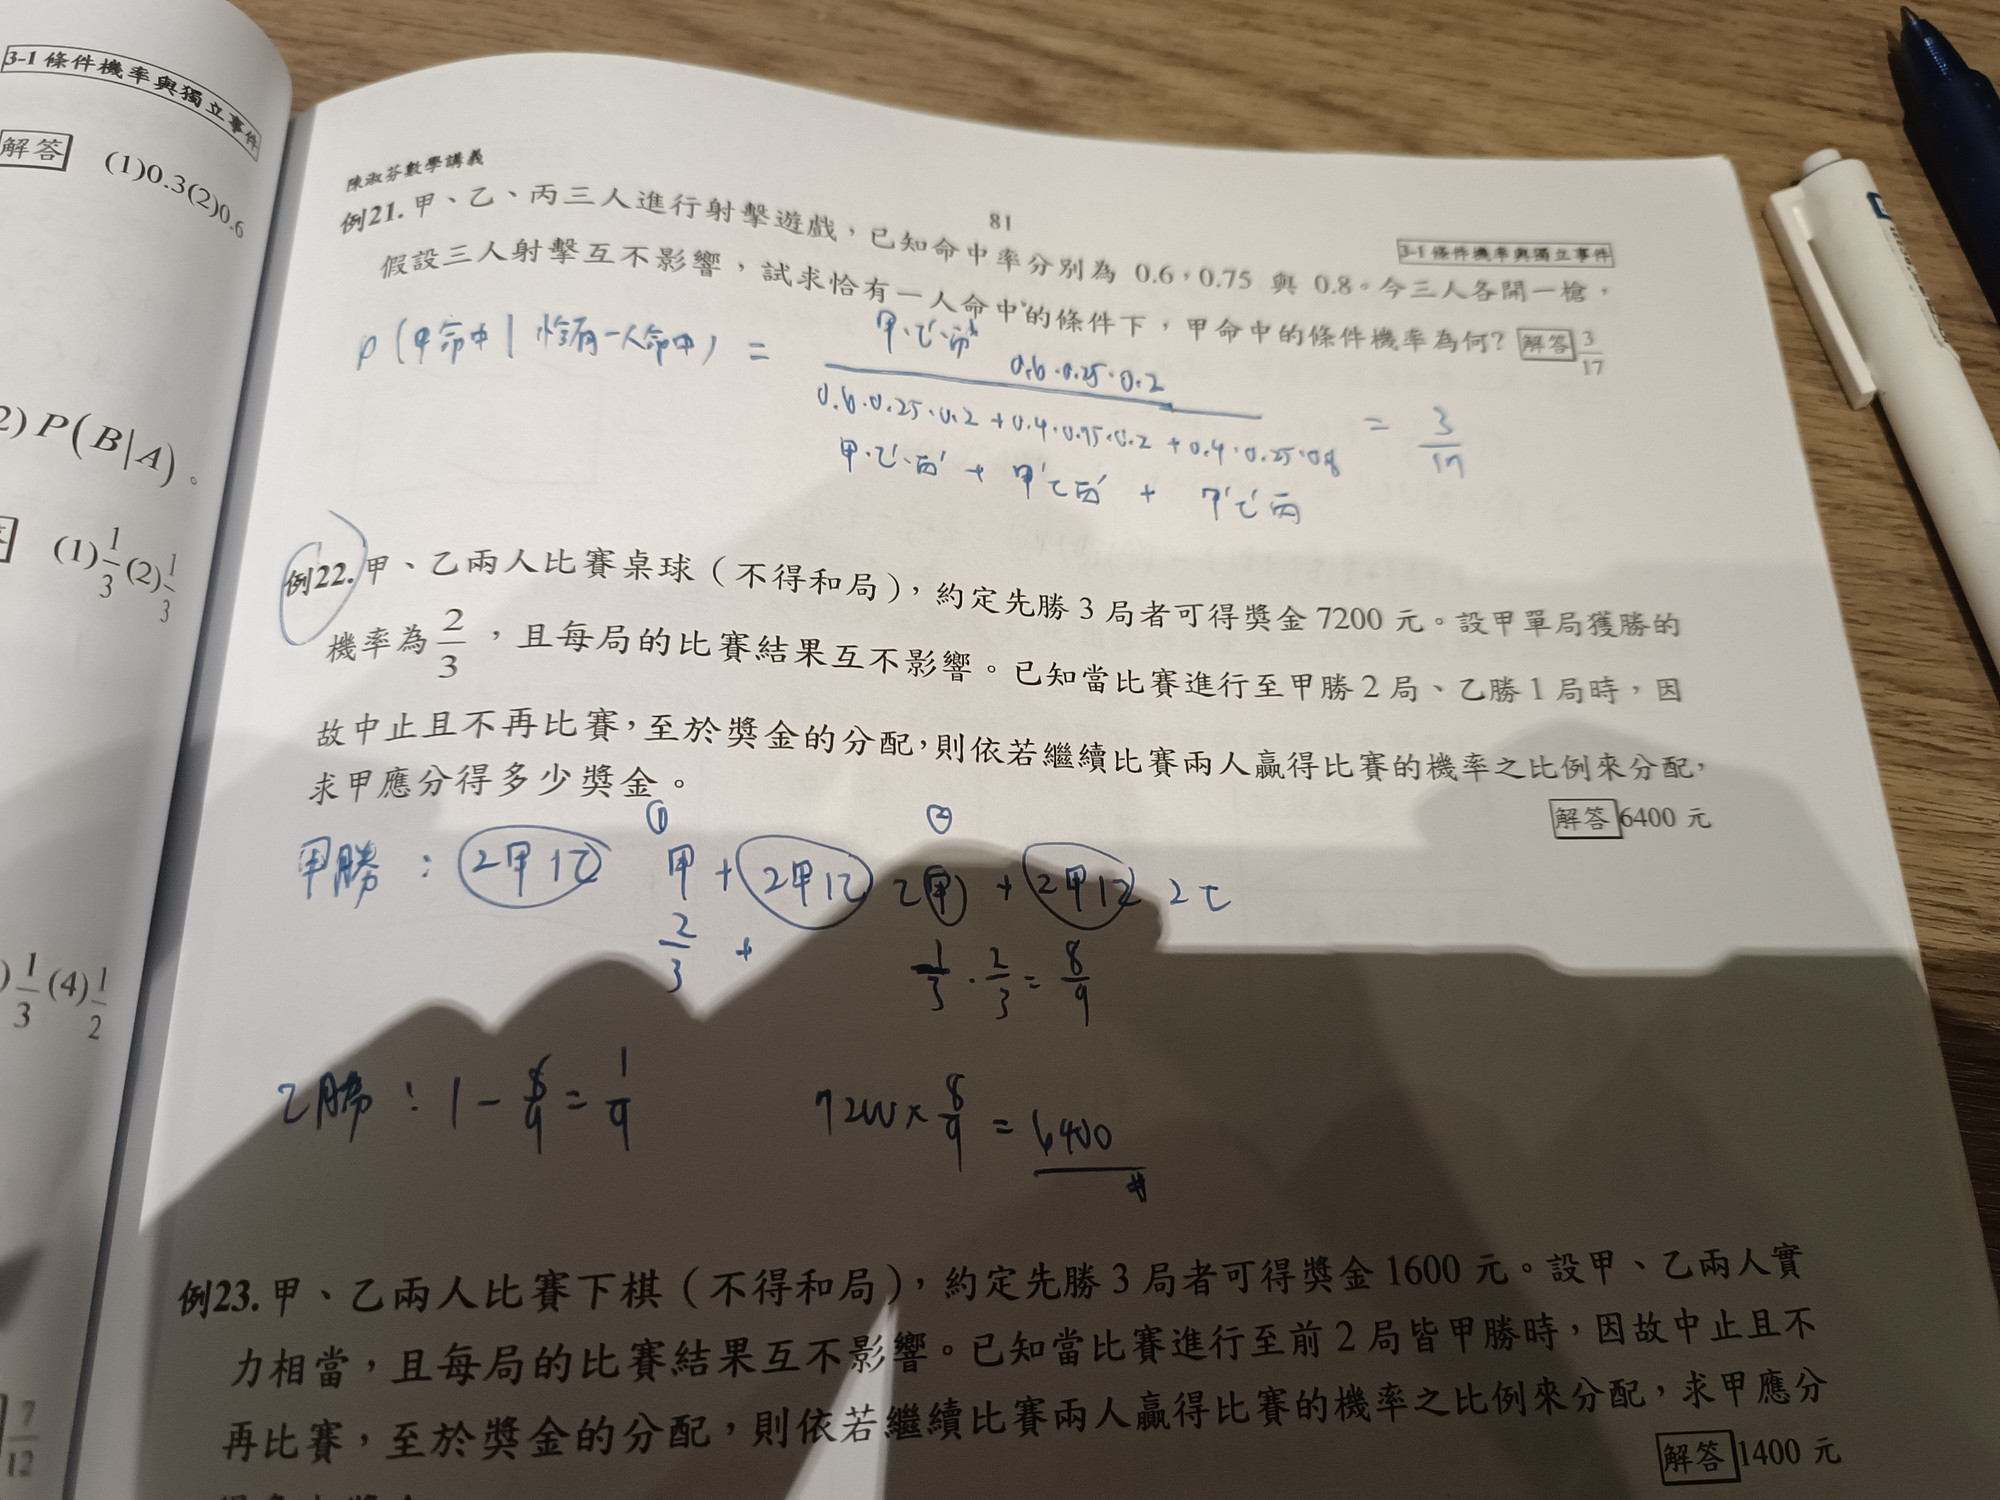 3-1 條件機率與獨立事件
解答 (1)0.3(2)0.6
2) P(B|A)。
(1)1/3(2)1/3
)1/3(4)1/2
7/12
陳淑芬數學講義
81
3-1 條件機率與獨立事件
例21. 甲、乙、丙三人進行射擊遊戲，已知命中率分別為 0.6，0.75 與 0.8。今三人各開一槍，
假設三人射擊互不影響，試求恰有一人命中的條件下，甲命中的條件機率為何? 解答 3/17
P(甲命中 | 恰有一人命中) =
甲·乙'·丙'
0.6·0.25·0.2
0.6·0.25·0.2 + 0.4·0.75·0.2 + 0.4·0.25·0.8 = 3/17
甲·乙'·丙' + 甲'乙丙' + 甲'乙'丙
例22. 甲、乙兩人比賽桌球（不得和局），約定先勝 3 局者可得獎金 7200 元。設甲單局獲勝的
機率為 2/3，且每局的比賽結果互不影響。已知當比賽進行至甲勝 2 局、乙勝 1 局時，因
故中止且不再比賽，至於獎金的分配，則依若繼續比賽兩人贏得比賽的機率之比例來分配，
求甲應分得多少獎金。
解答 6400 元
① ②
甲勝 : 2甲1乙 甲 + 2甲1乙 乙甲 + 2甲1乙 2乙
2/3 + 1/3 · 2/3 = 8/9
乙勝 : 1 - 8/9 = 1/9
7200 × 8/9 = 6400 #
例23. 甲、乙兩人比賽下棋（不得和局），約定先勝 3 局者可得獎金 1600 元。設甲、乙兩人實
力相當，且每局的比賽結果互不影響。已知當比賽進行至前 2 局皆甲勝時，因故中止且不
再比賽，至於獎金的分配，則依若繼續比賽兩人贏得比賽的機率之比例來分配，求甲應分
解答 1400 元